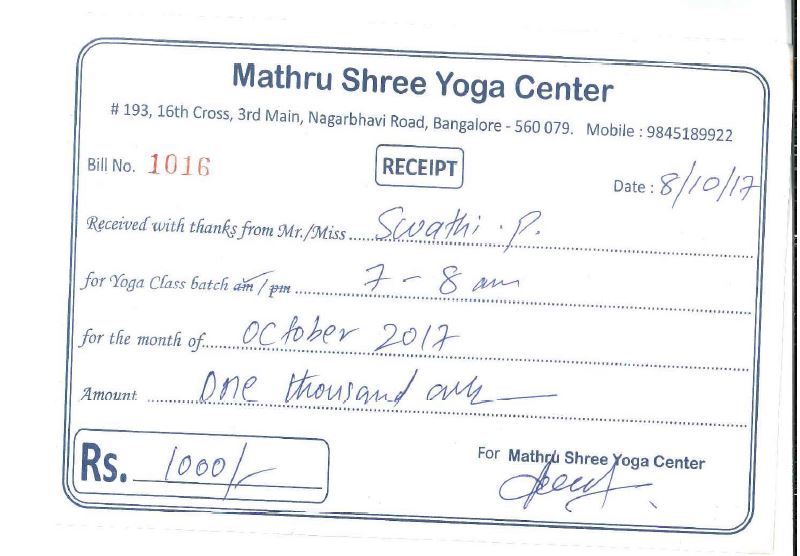 Mathru Shree Yoga Center
# 193, 16th Cross, 3rd Main, Nagarbhavi Road, Bangalore - 560 079. Mobile : 9845189922
Bill No. 1016 RECEIPT Date : 8/10/17
Received with thanks from Mr./Miss Swathi . P.
for Yoga Class batch am / pm 7 - 8 am
for the month of October 2017
Amount One thousand only
Rs. 1000/-
For Mathru Shree Yoga Center